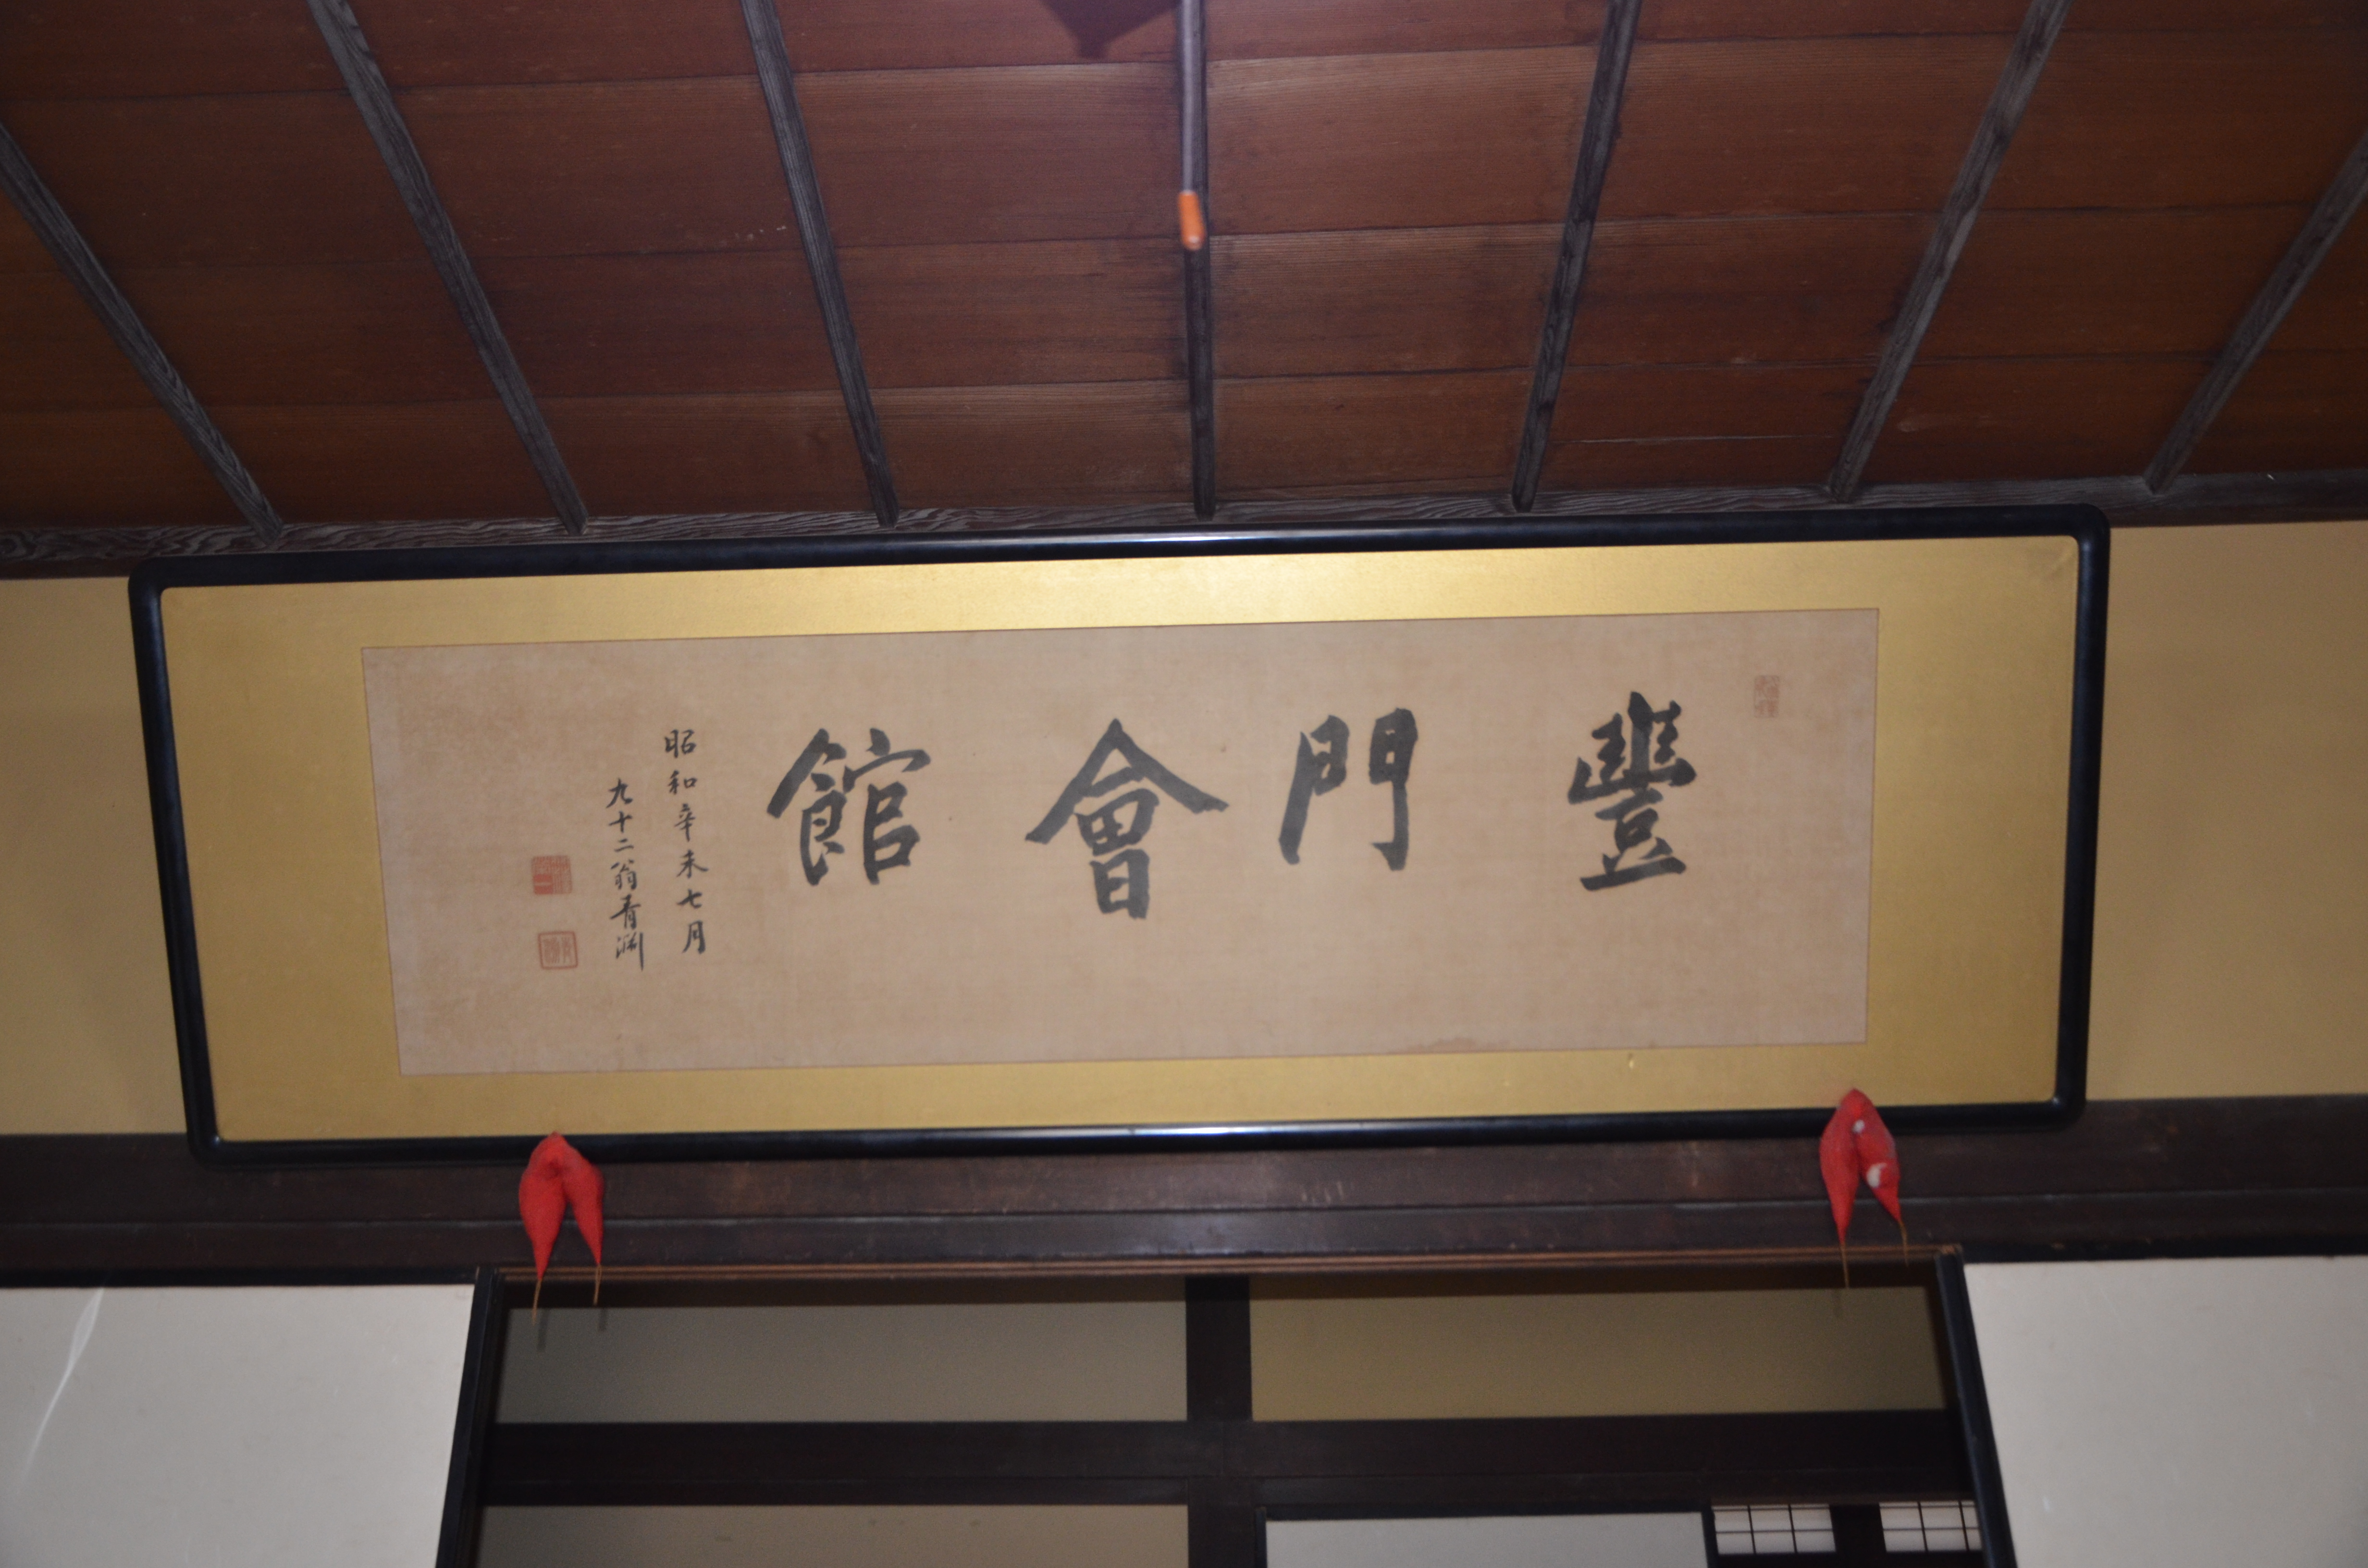 豐門會館
昭和辛未七月
九十二翁青淵